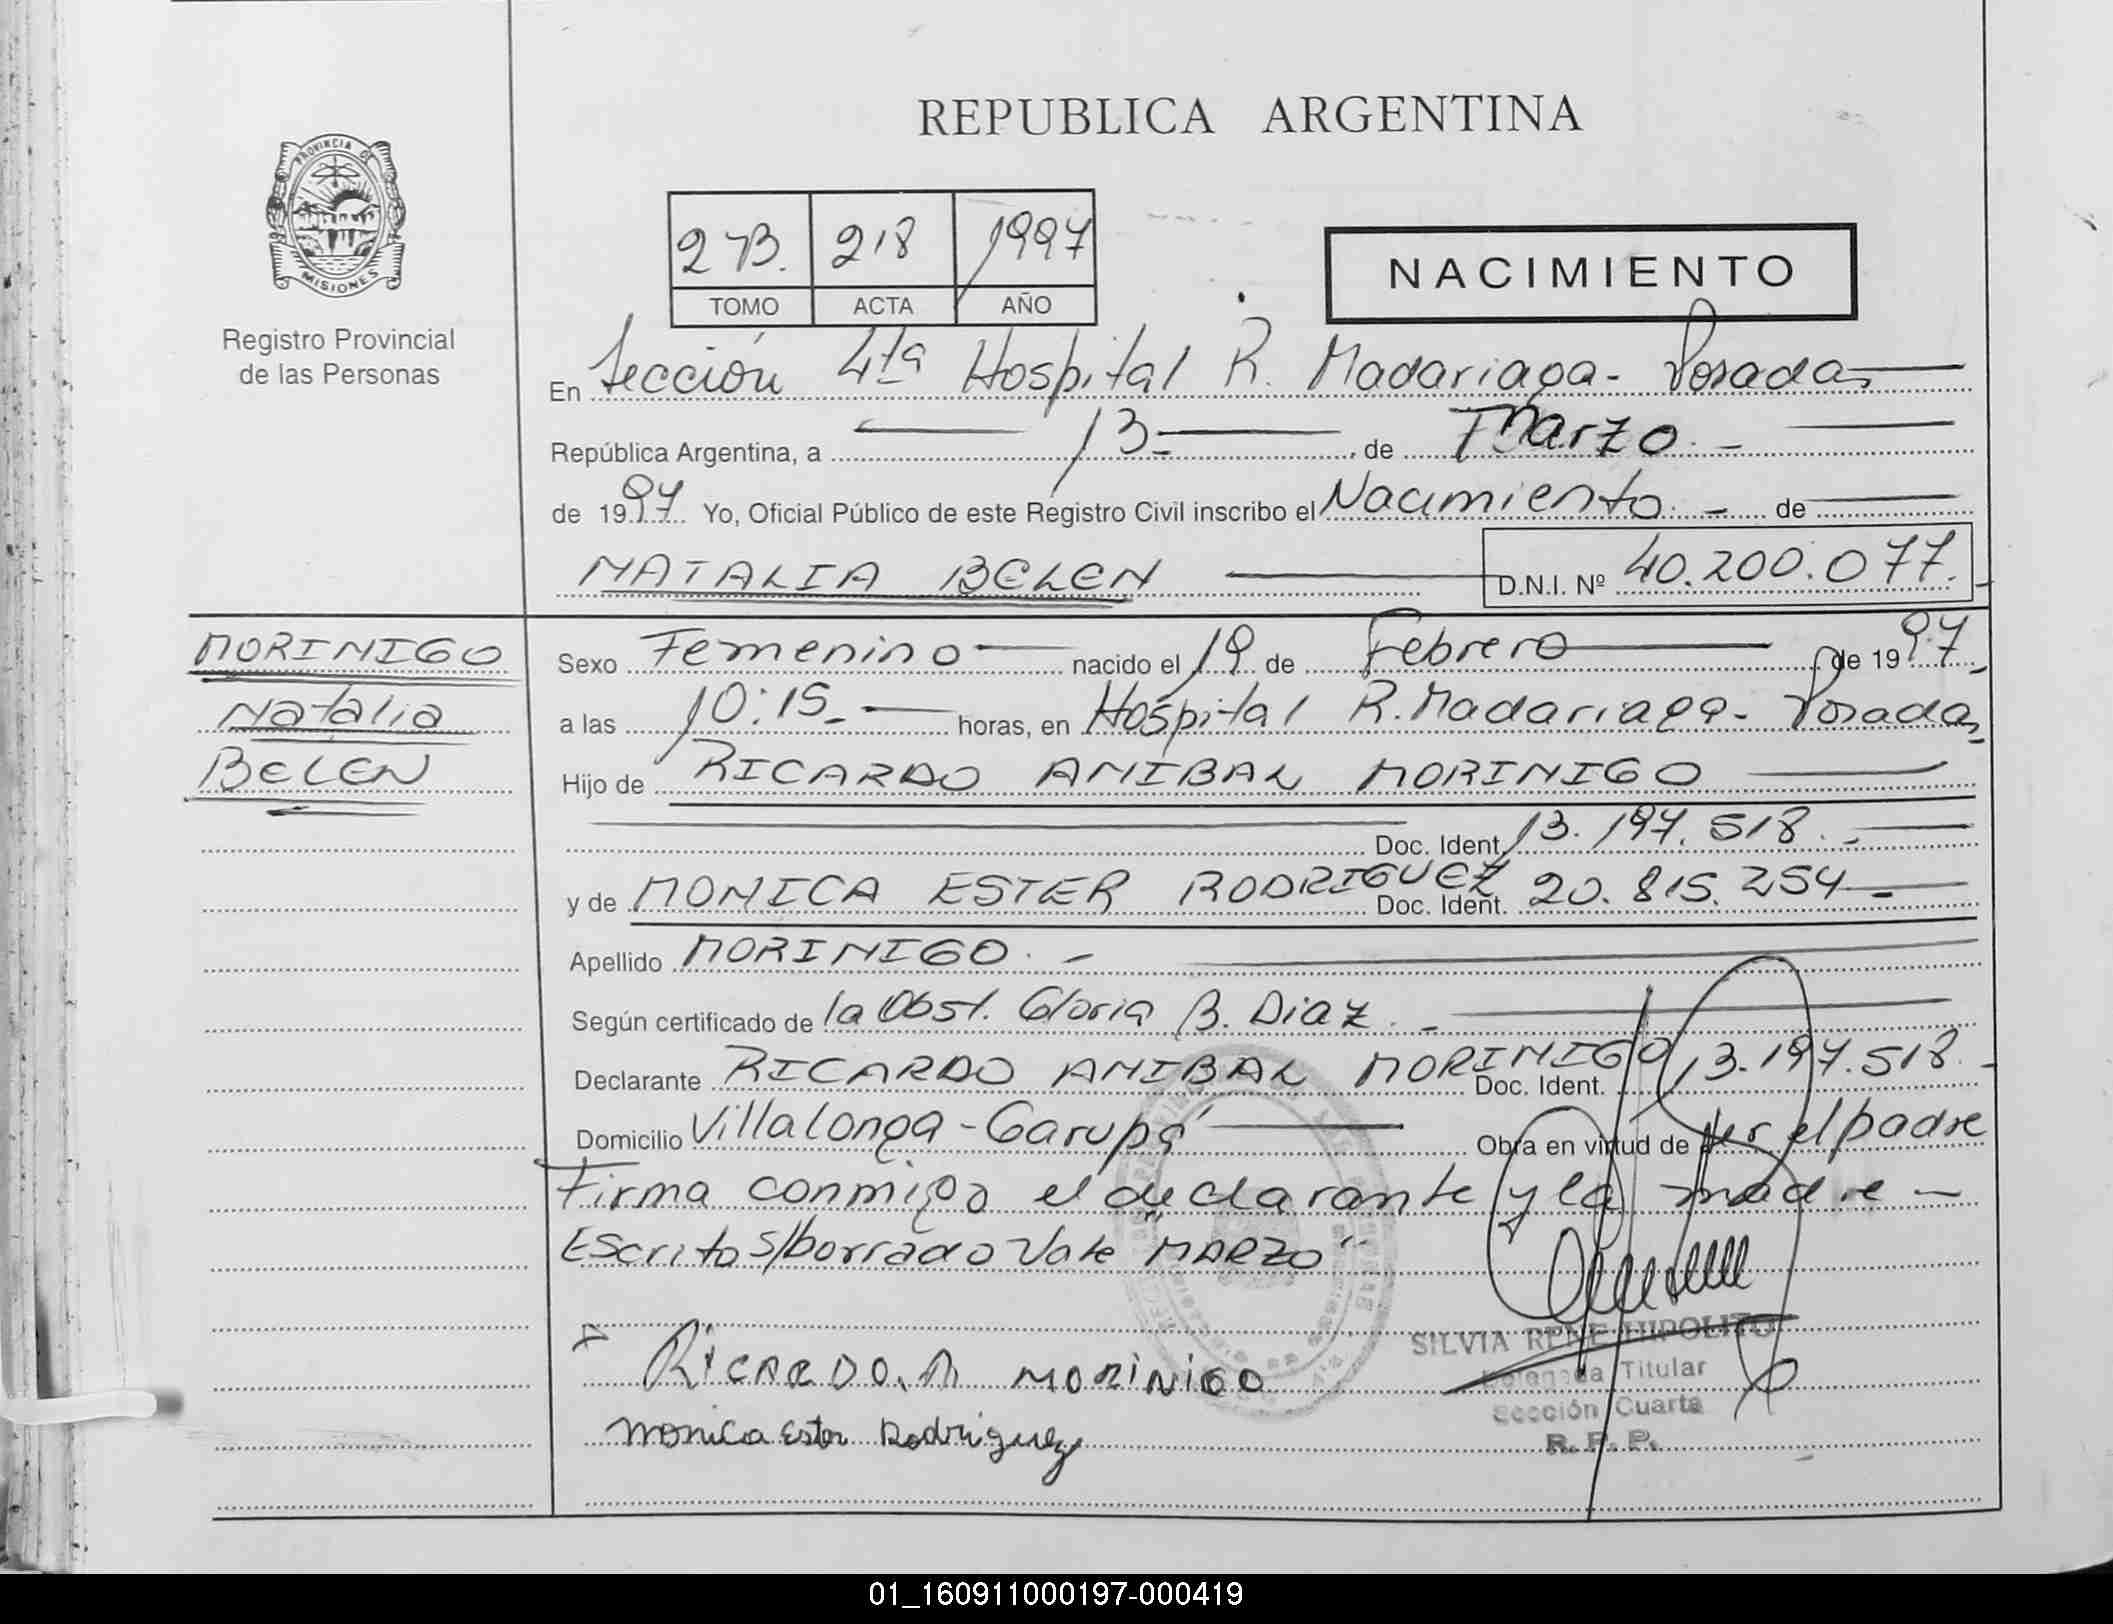 REPUBLICA ARGENTINA
PROVINCIA DE
MISIONES
Registro Provincial
de las Personas
2 B. 218 1997
TOMO ACTA AÑO
NACIMIENTO
En Sección 4ta Hospital R. Madariaga - Posadas
República Argentina, a 13 - , de Marzo. -
de 1997. Yo, Oficial Público de este Registro Civil inscribo el Nacimiento. - de
NATALIA BELEN D.N.I. Nº 40.200.077.-
MORINIGO
Natalia
BELEN
Sexo Femenino nacido el 19 de Febrero de 1997.-
a las 10:15.- horas, en Hospital R. Madariaga - Posadas
Hijo de RICARDO ANIBAL MORINIGO
Doc. Ident. 13.197.518. -
y de MONICA ESTER RODRIGUEZ Doc. Ident. 20.815.254 -
Apellido MORINIGO. -
Según certificado de la Obst. Gloria B. Diaz. -
Declarante RICARDO ANIBAL MORINIGO Doc. Ident. 13.197.518.-
Domicilio Villalonga - Garupá Obra en virtud de ser el padre
Firma conmigo el declarante y la madre -
Escrito s/borrado Vale "MARZO"
RICARDO. A MORINIGO
Monica Ester Rodriguez
SILVIA RENE HIPOLITO
Delegada Titular
Sección Cuarta
R. P. P.
01_160911000197-000419